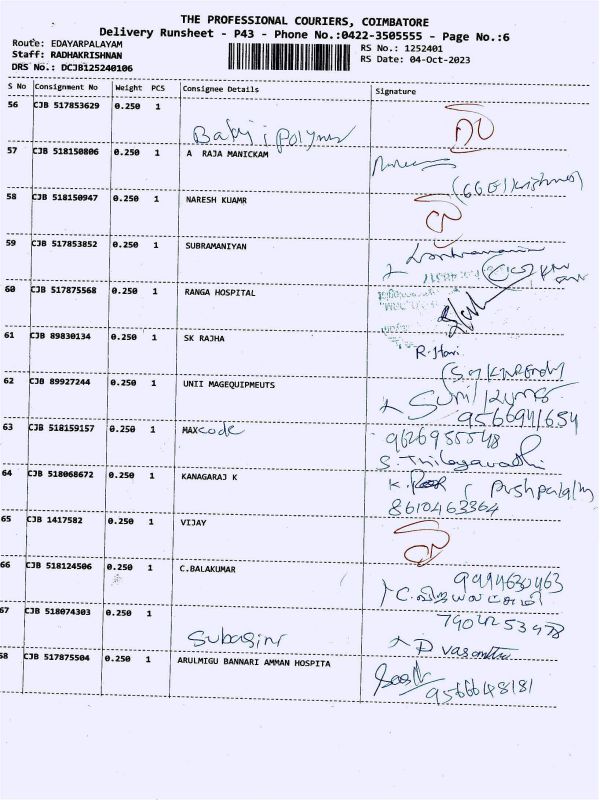 THE PROFESSIONAL COURIERS, COIMBATORE
Delivery Runsheet - P43 - Phone No.:0422-3505555 - Page No.:6
Route: EDAYARPALAYAM
Staff: RADHAKRISHNAN
DRS No.: DCJB125240106
RS No.: 1252401
RS Date: 04-Oct-2023
S No Consignment No Weight PCS Consignee Details Signature
56 CJB 517853629 0.250 1
57 CJB 518150806 0.250 1 A RAJA MANICKAM
58 CJB 518150947 0.250 1 NARESH KUAMR
59 CJB 517853852 0.250 1 SUBRAMANIYAN
60 CJB 517875568 0.250 1 RANGA HOSPITAL
61 CJB 89830134 0.250 1 SK RAJHA
R. Hari
62 CJB 89927244 0.250 1 UNII MAGEQUIPMEUTS
Sunil Kumar
9566941654
63 CJB 518159157 0.250 1 MAXcode
9626955548
S. Thilagavathi
64 CJB 518068672 0.250 1 KANAGARAJ K
8610463364
65 CJB 1417582 0.250 1 VIJAY
66 CJB 518124506 0.250 1 C.BALAKUMAR
9994630463
67 CJB 518074303 0.250 1
Subagini
D vasantha
68 CJB 517875504 0.250 1 ARULMIGU BANNARI AMMAN HOSPITA
9566648181